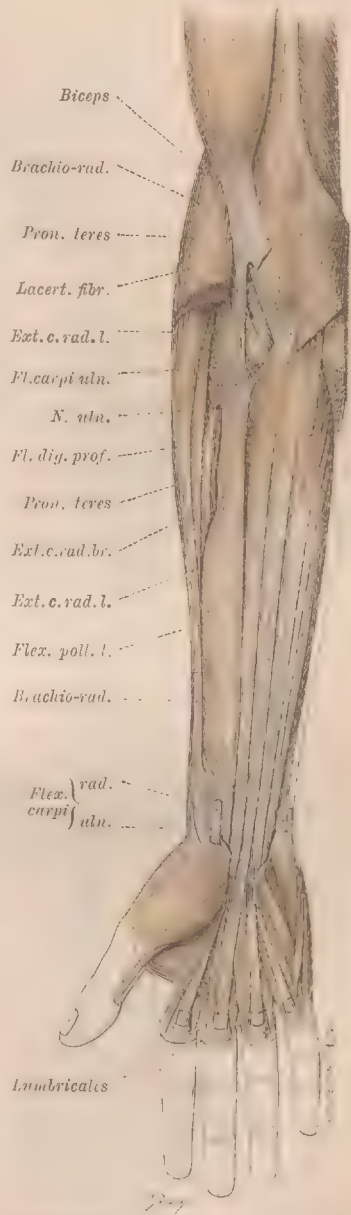 Biceps
Brachio-rad.
Pron. teres
Lacert. fibr.
Ext. c. rad. l.
Fl. carpi uln.
N. uln.
Fl. dig. prof.
Pron. teres
Ext. c. rad. br.
Ext. c. rad. l.
Flex. poll. l.
Brachio-rad.
Flex. carpi { rad.
uln.
Lumbricales